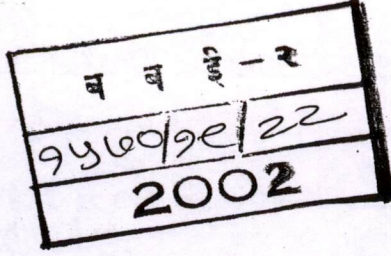 ब ब ई - २
१५७०/१९/२२
2002